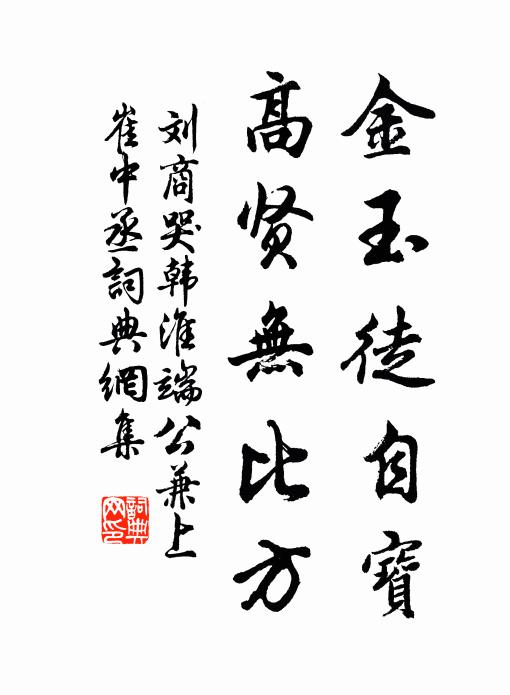 金玉徒自寶
高贤無比方
刘商哭韩淮端公兼上
崔中丞詞典網集
詞典
网印